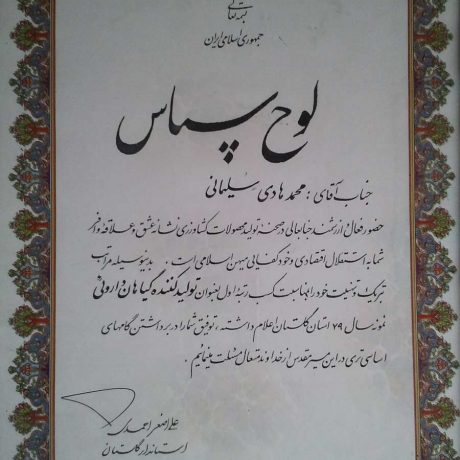 بسمه تعالی
جمهوری اسلامی ایران
لوح سپاس
جناب آقای : محمد هادی سلیمانی
حضور فعال و ارزشمند جنابعالی در صحنه تولید محصولات کشاورزی نشانه عشق و علاقه وافر
شما به استقلال اقتصادی و خودکفایی میهن اسلامی است . بدینوسیله مراتب
تبریک و تهنیت خود را بمناسبت کسب رتبه اول بعنوان تولید کننده گیاهان داروئی
نمونه سال ۷۹ استان گلستان اعلام داشته ، توفیق شما را در برداشتن گامهای
اساسی تری در این مسیر مقدس از خداوند متعال مسئلت مینمائیم .
علی اصغر احمدی
استاندار گلستان